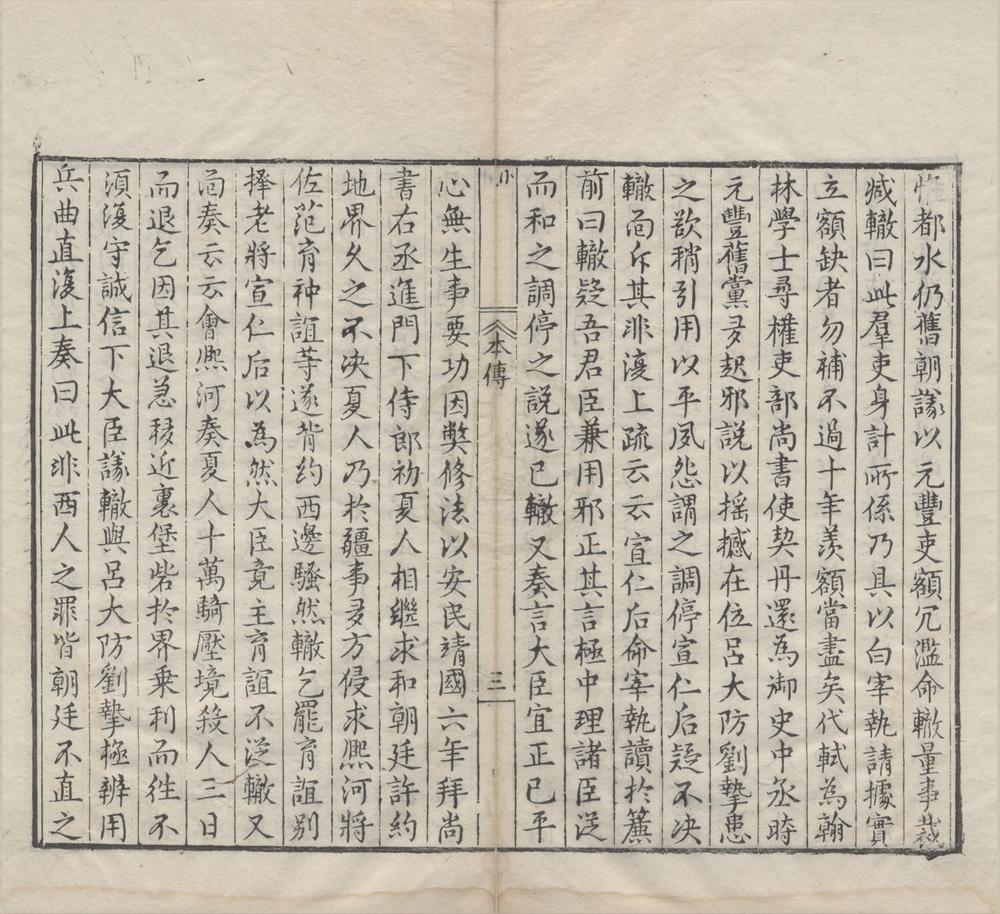 惟都水仍舊朝議以元豐吏額冗濫命轍量事裁
减轍曰此羣吏身計所係乃具以白宰執請據實
立額缺者勿補不過十年羨額當盡矣代軾為翰
林學士尋權吏部尚書使契丹還為御史中丞時
元豐舊黨多起邪說以摇撼在位呂大防劉摯患
之欲稍引用以平夙怨謂之調停宣仁后疑不决
轍面斥其非復上疏云云宣仁后命宰執讀於簾
前曰轍疑吾君臣兼用邪正其言極中理諸臣從
而和之調停之説遂已轍又奏言大臣宜正已平
本傳
三
心無生事要功因弊修法以安民靖國六年拜尚
書右丞進門下侍郎初夏人相繼求和朝廷許約
地界久之不决夏人乃於疆事多方侵求熈河將
佐范育种誼等遂背約西邊騷然轍乞罷育誼别
擇老將宣仁后以為然大臣竟主育誼不從轍又
面奏云云會熈河奏夏人十萬騎壓境殺人三日
而退乞因其退急移近裏堡砦於界乗利而徃不
湏復守誠信下大臣議轍與呂大防劉摯極辨用
兵曲直復上奏曰此非西人之罪皆朝廷不直之